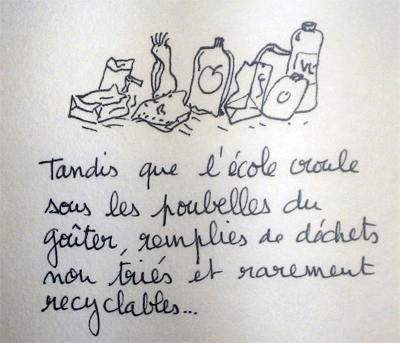 VL
Tandis que l'école croule
sous les poubelles du
goûter, remplies de déchets
non triés et rarement
recyclables...